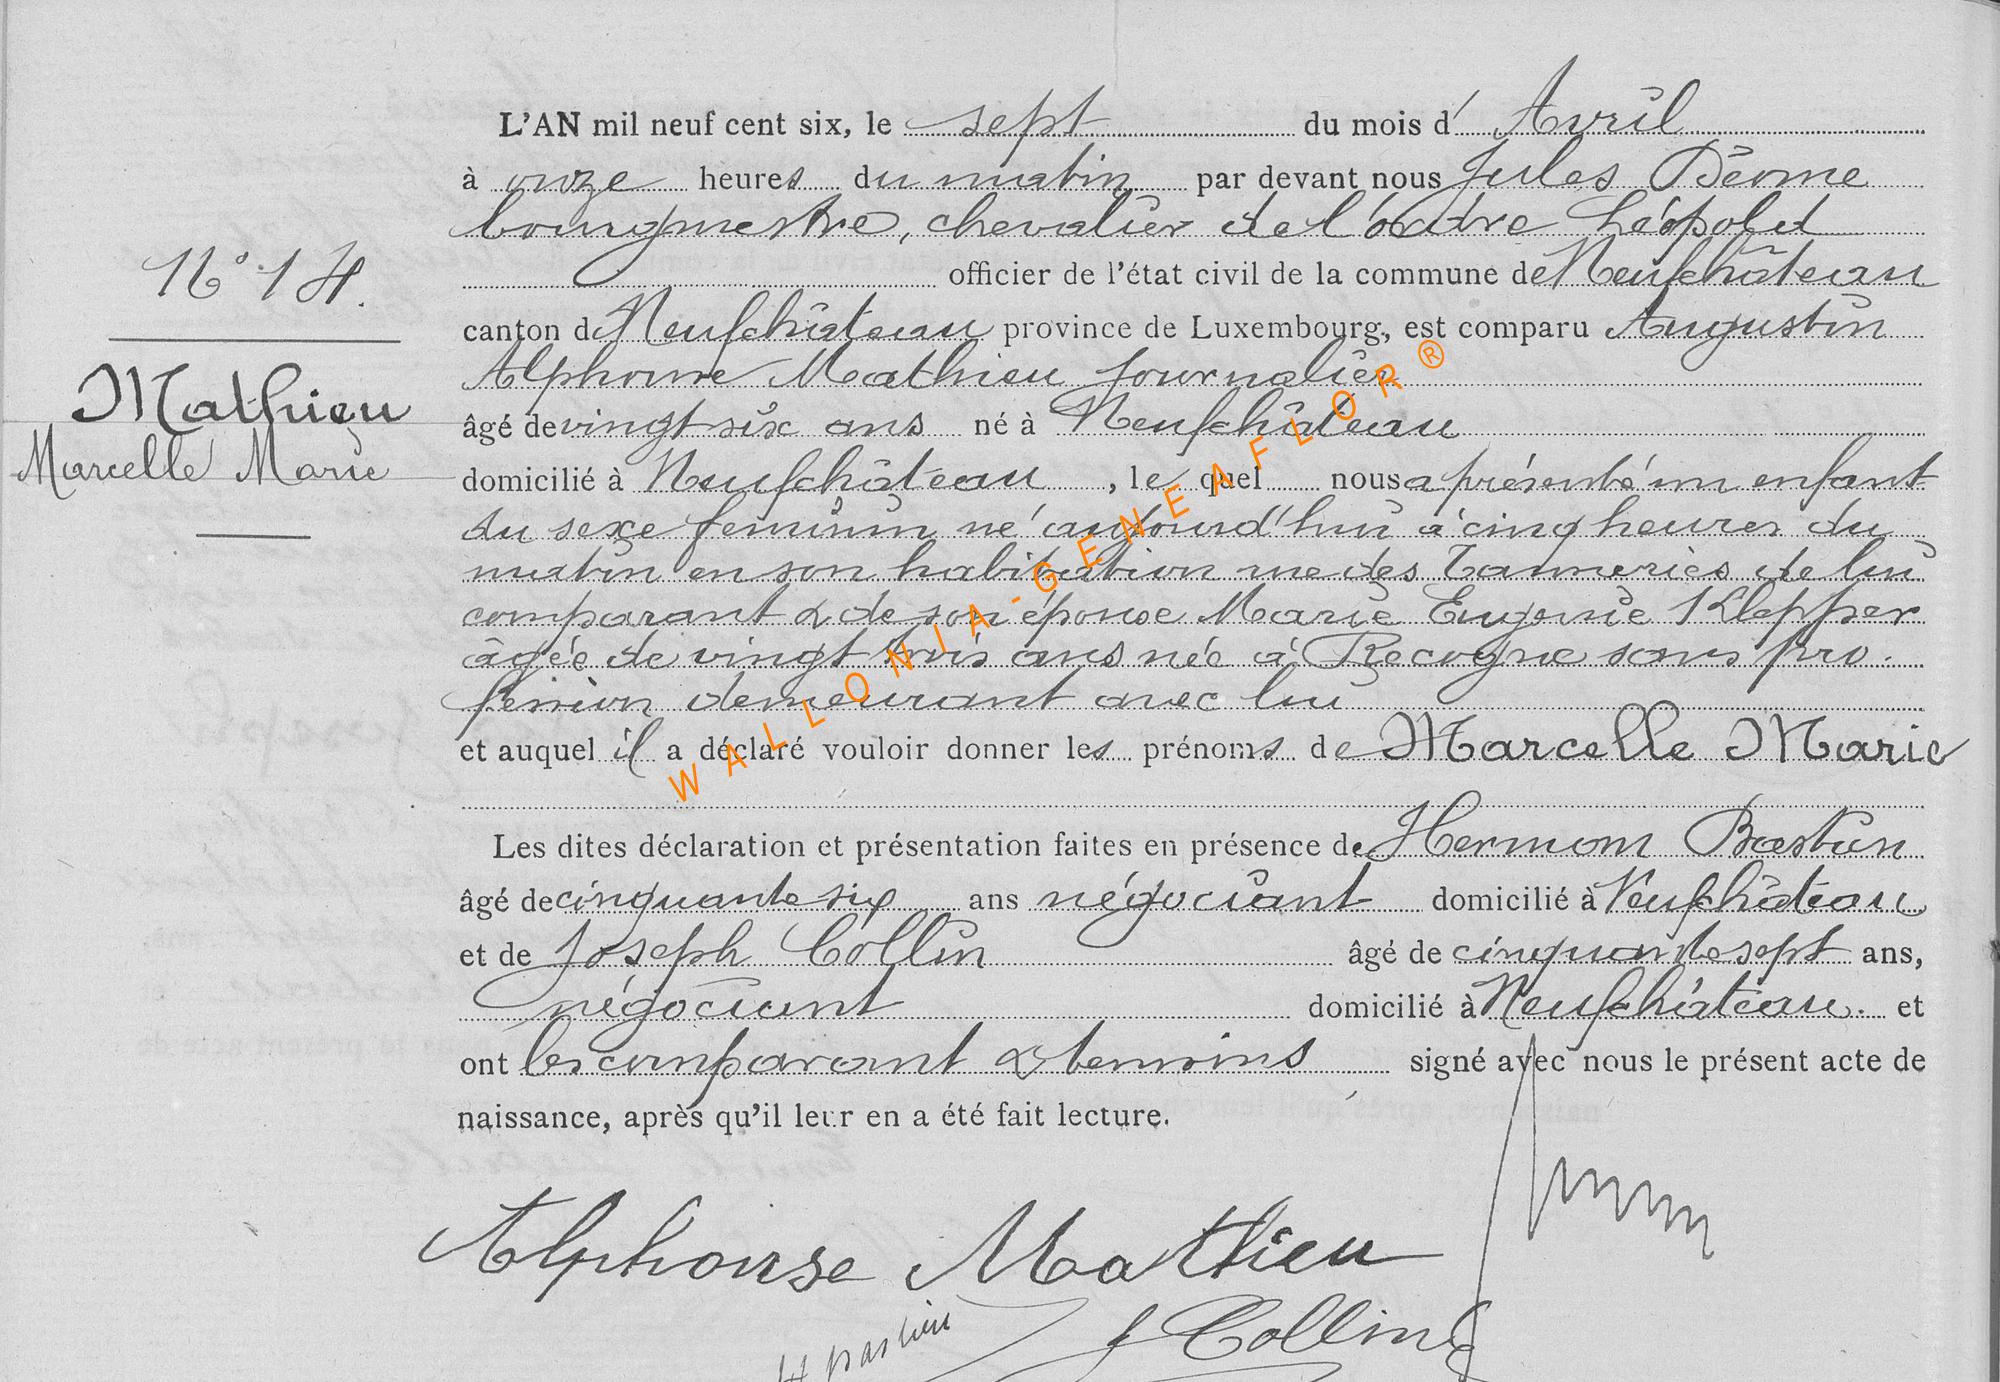 L'AN mil neuf cent six, le sept du mois d'Avril
à onze heures du matin par devant nous Jules
bourgmestre, chevalier de l'ordre Léopold
N° 14.
officier de l'état civil de la commune de Neufchâteau
canton de Neufchâteau province de Luxembourg, est comparu Augustin
Mathieu
Marcelle Marie
Alphonse Mathieu journalier
âgé de vingt six ans né à Neufchâteau
domicilié à Neufchâteau, lequel nous a présenté un enfant
du sexe feminin né aujourd'hui à cinq heures du
matin en son habitation rue des Tanneries de lui
comparant & de son épouse Marie Eugenie Klepper
âgée de vingt trois ans née à Recogne sans pro-
fession demeurant avec lui
et auquel il a déclaré vouloir donner les prénoms de Marcelle Marie
Les dites déclaration et présentation faites en présence de Herman Bastin
âgé de cinquante six ans négociant domicilié à Neufchâteau
et de Joseph Collin âgé de cinquante sept ans,
négociant domicilié à Neufchâteau. et
ont les comparant & temoins signé avec nous le présent acte de
naissance, après qu'il leur en a été fait lecture.
Alphonse Mathieu
J Collin
WALLONIA-GENEAFLOR®